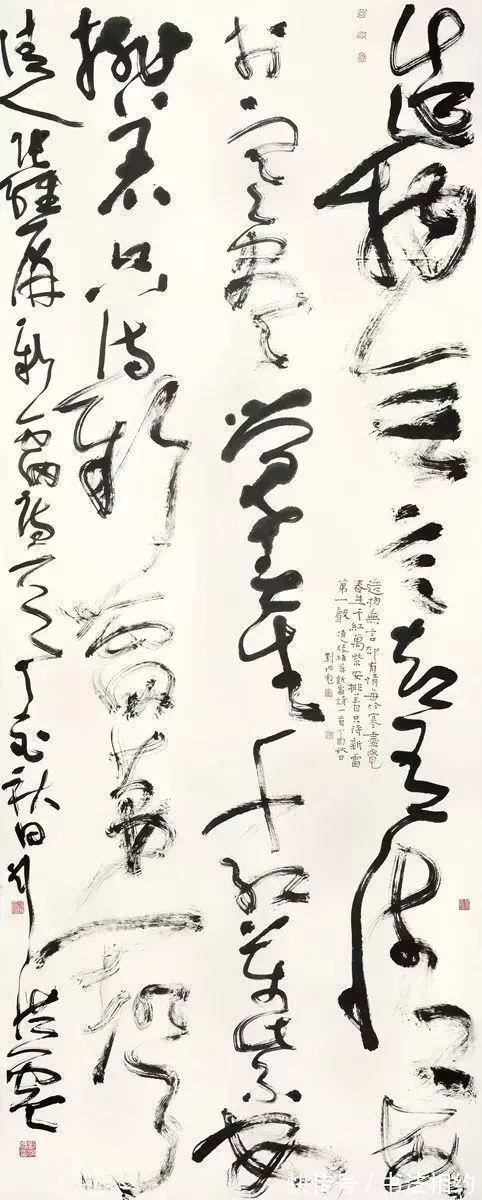 造物無言却有情每
於寒盡覺春生千紅萬紫安
排着只待新雷第一聲
清人張維屏新雷詩一首丁酉秋日劉洪彪
造物無言却有情每於寒盡覺
春生千紅萬紫安排着只待新雷
第一聲 清人張維屏新雷詩一首丁酉秋日
劉洪彪
快传号 / 书法相约